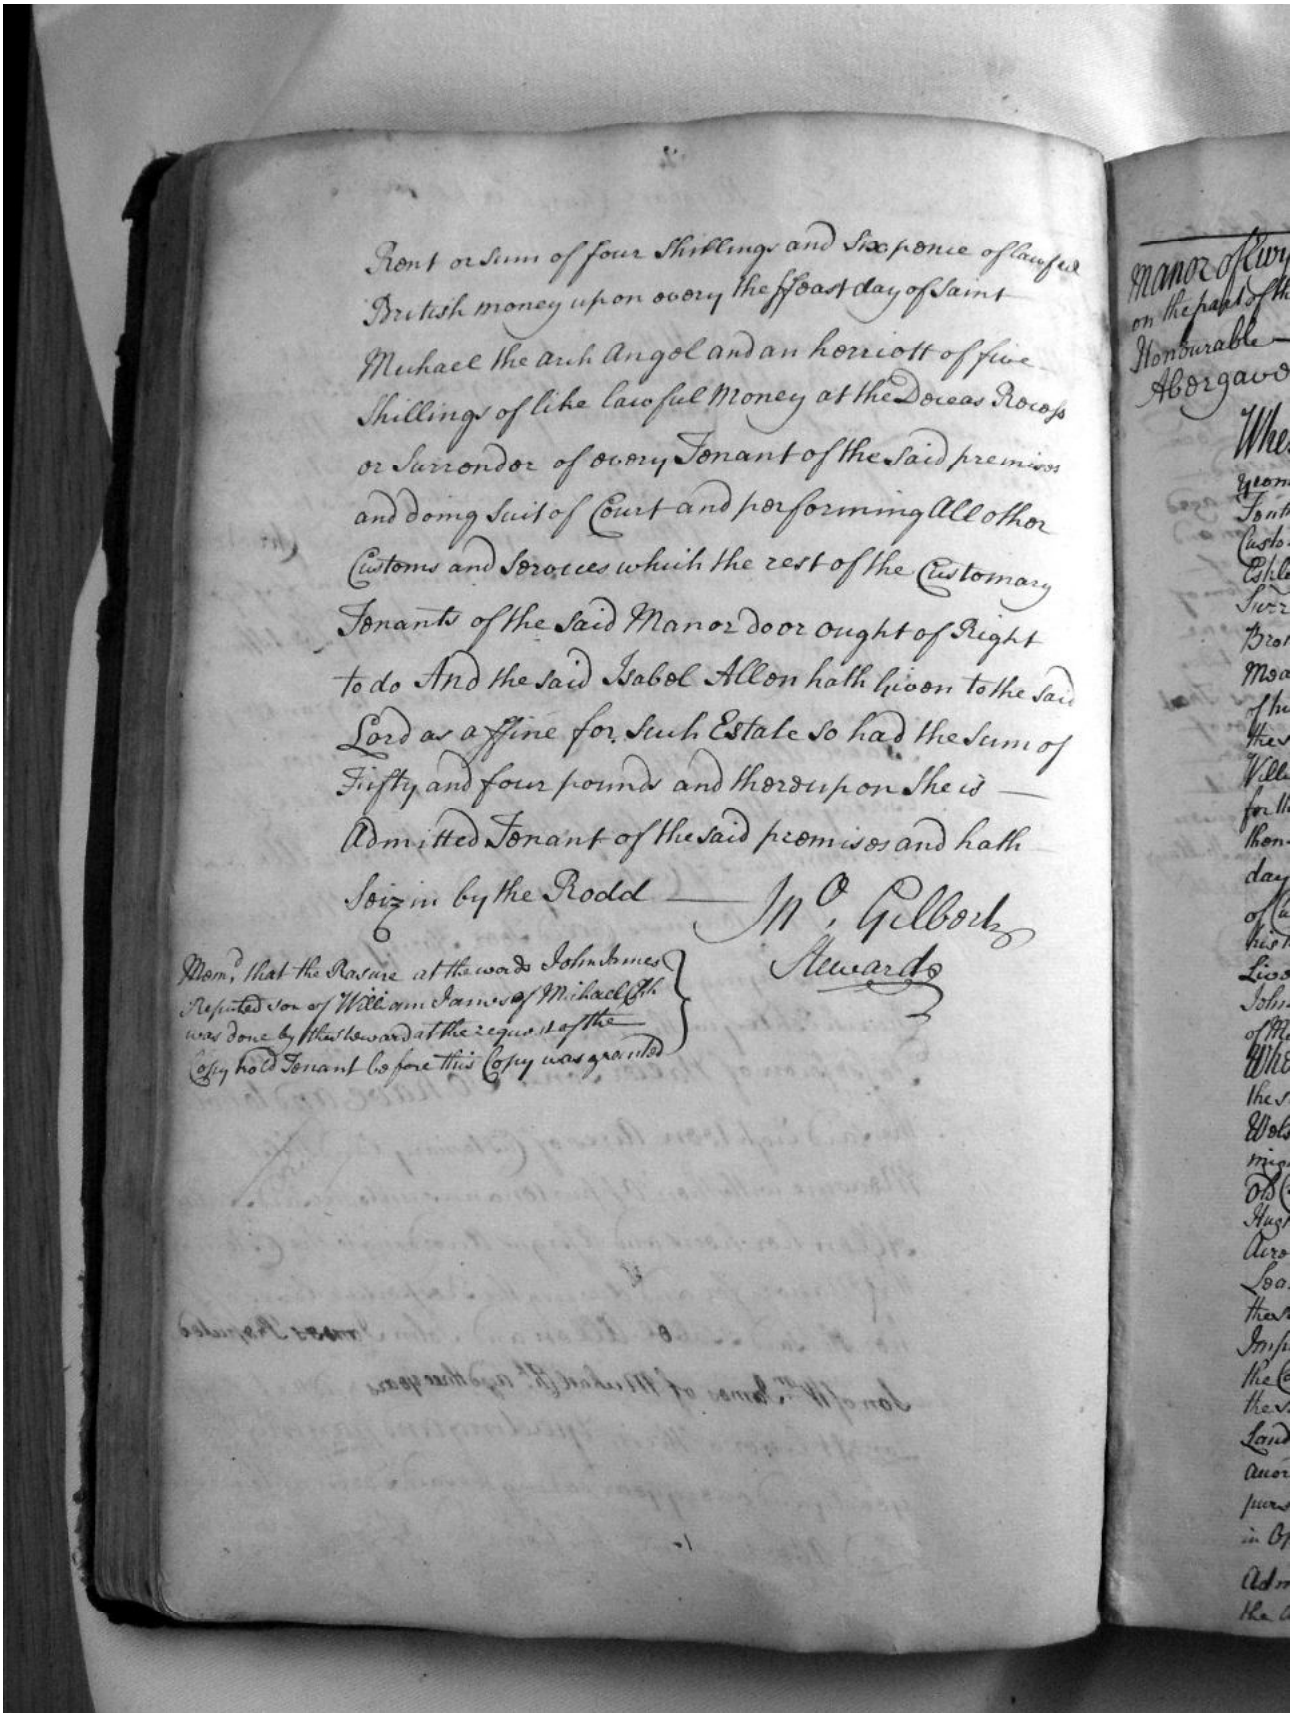 Rent or Sum of four Shillings and Sixpence of lawful
British money upon every the ffeast day of Saint
Michael the Arch Angel and an herriott of five
Shillings of like lawful Money at the Deceas Recess
or Surrender of every Tenant of the said premises
and doing Suit of Court and performing All other
Customs and Services which the rest of the Customary
Tenants of the said Manor do or ought of Right
to do And the said Isabel Allen hath Given to the said
Lord as a ffine for Such Estate so had the Sum of
Fifty and four pounds and thereupon She is —
Admitted Tenant of the said premises and hath
Seizin by the Rodd — Jno. Gilbert
Steward
Memd. that the Rasure at the words John James
Reputed son of William James of Michael Ch
was done by this Steward at the request of the
Copy hold Tenant before this Copy was granted
Manor of
on the part of th
Honourable
Abergave
Whe
yeom
Custo
Surr
Bro
Mea
of hi
the s
Willi
for th
then
day
of Cu
his
John
of M
Whe
the s
mig
Old C
Hugh
Acre
Lea
the s
the C
the s
Land
purs
Adm
the